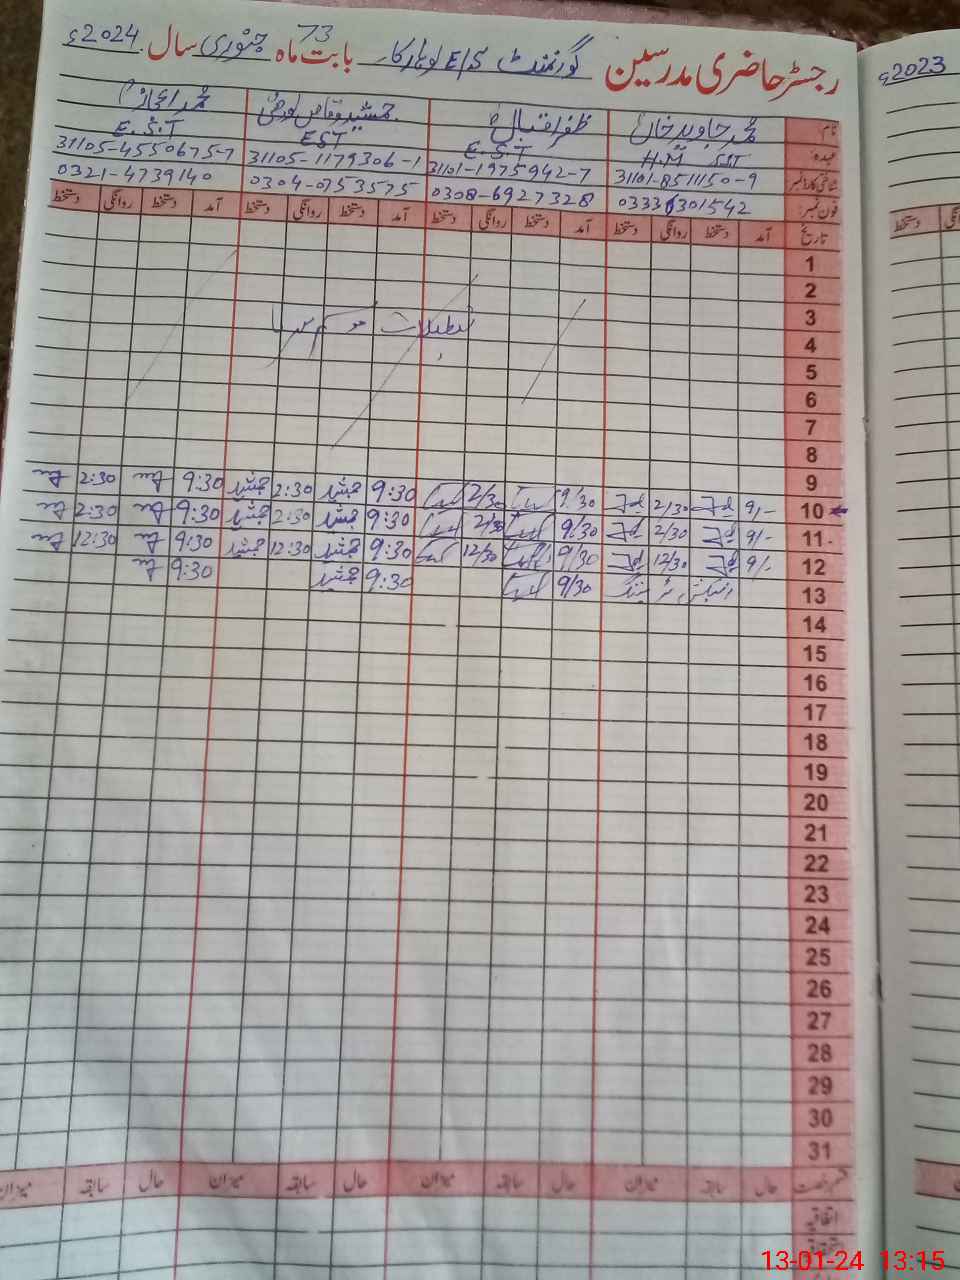 رجسٹر حاضری مدرسین گورنمنٹ E/S بابت ماہ جنوری سال 2024ء
73
نام: محمد جاوید خان ظفر اقبال جمشید وقاص
عہدہ: H.M SST E.S.T EST E.S.T
شناختی کارڈ نمبر 31101-8511150-9 31101-1975942-7 31105-1179306-1 31105-4550675-7
فون نمبر: 03336301542 0308-6927328 0304-0753575 0321-4739140
تاریخ آمد دستخط روانگی دستخط آمد دستخط روانگی دستخط آمد دستخط روانگی دستخط آمد دستخط روانگی دستخط
1
2
3 تعطیلات موسم سرما
4
5
6
7
8
9
10 9/- 2/30 9/30 2/30 9:30 جمشید 2:30 جمشید 9:30 2:30
11 9/- 2/30 9/30 2/30 9:30 جمشید 2:30 جمشید 9:30 2:30
12 9/- 12/30 9/30 12/30 9:30 جمشید 12:30 جمشید 9:30 12:30
13 9/30 9:30 جمشید 9:30
14
15
16
17
18
19
20
21
22
23
24
25
26
27
28
29
30
31
قسم رخصت حال سابقہ میزان حال سابقہ میزان حال سابقہ میزان حال سابقہ میزان
اتفاقیہ
2023ء
دستخط
13-01-24 13:15